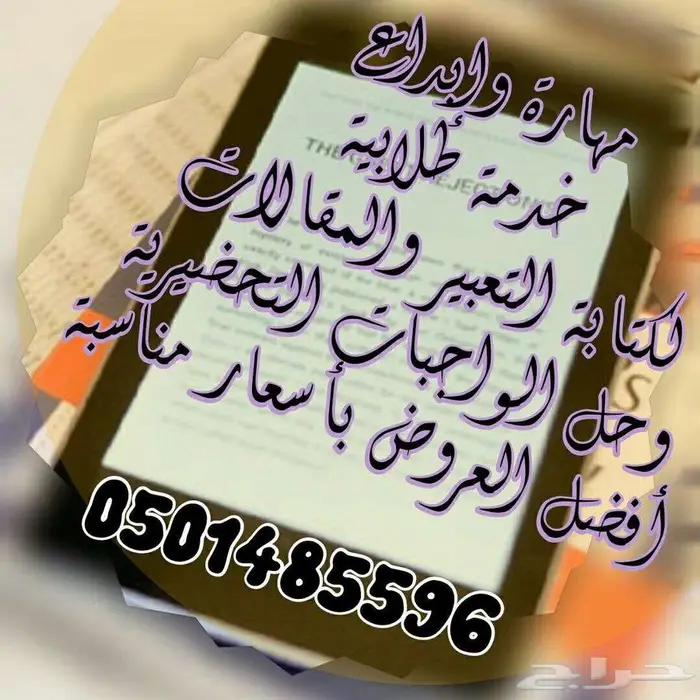 مهارة وإبداع
خدمة طلابية
لكتابة التعبير والمقالات
وحل الواجبات التحضيرية
أفضل العروض بأسعار مناسبة
0501485596
حراج